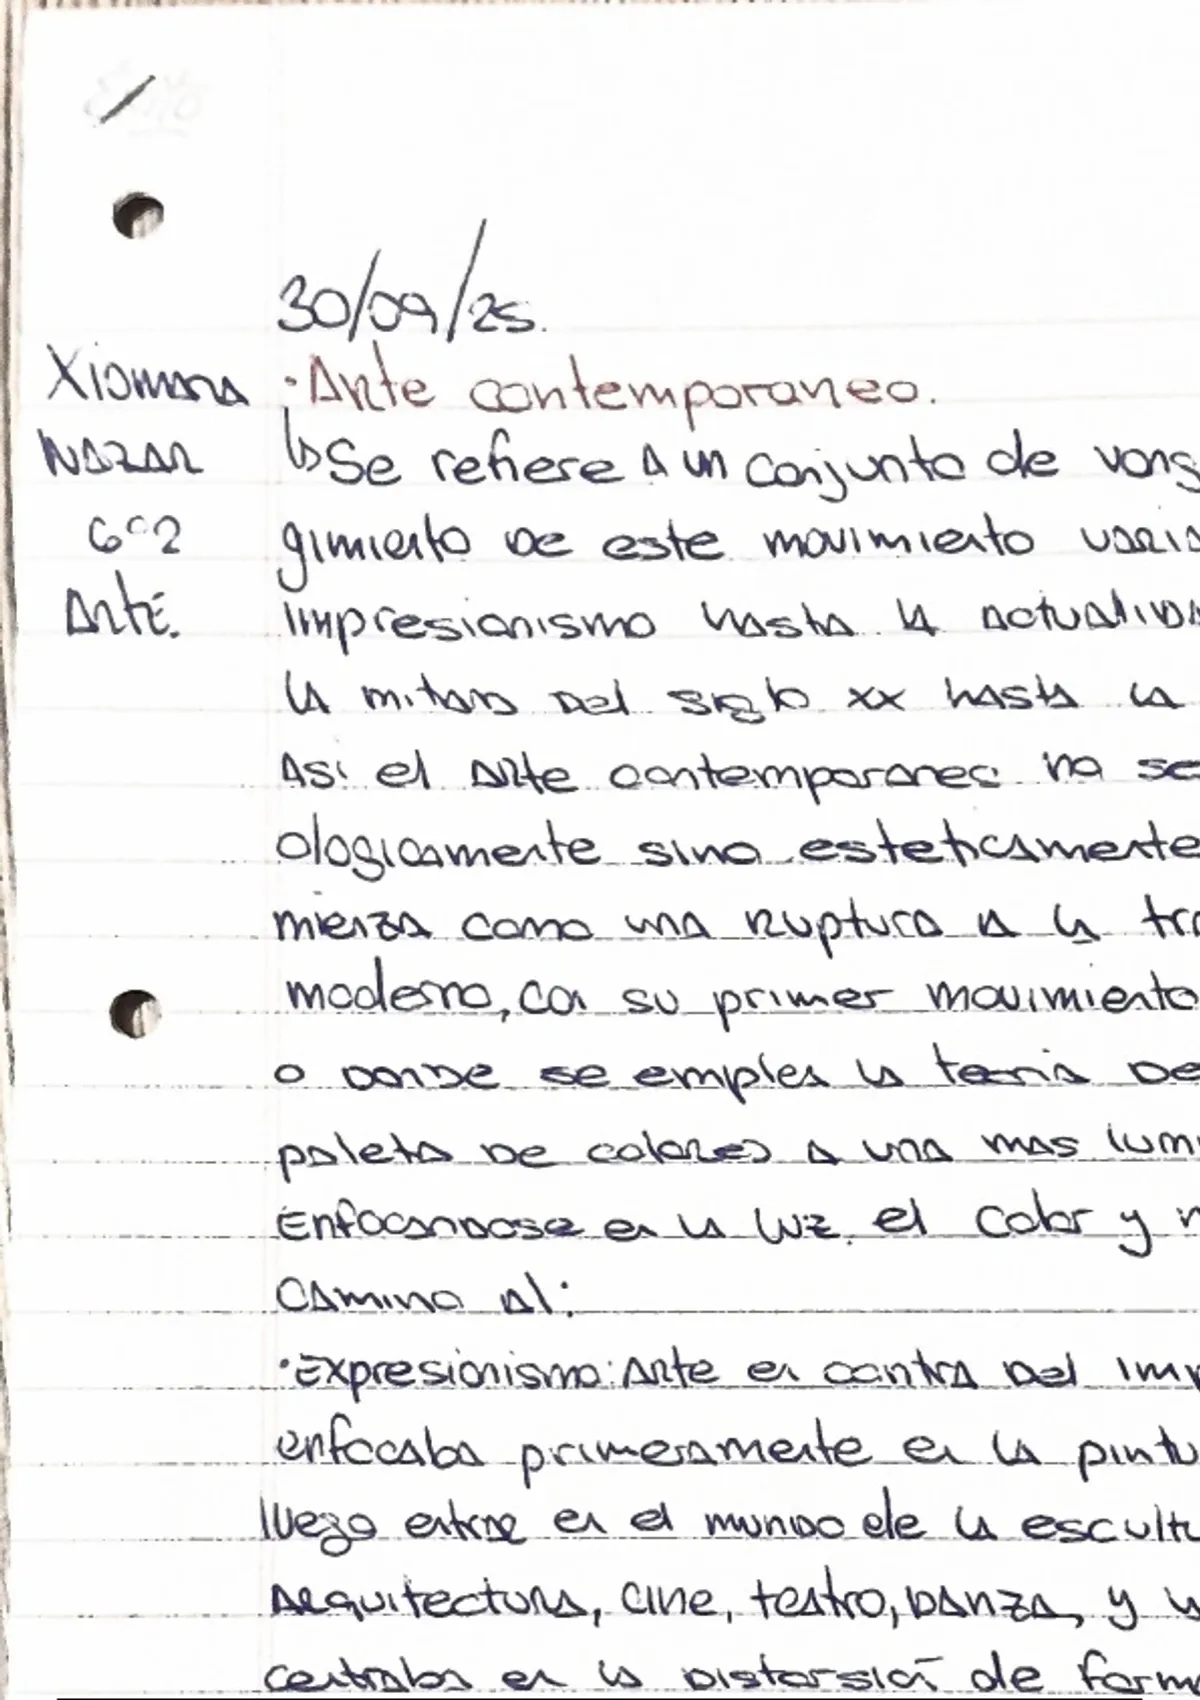 30/09/25.
Xiomara
Nazar
6º2
Arte.
·Arte contemporaneo.
↳Se refiere a un conjunto de vang
gimiento de este movimiento varia
impresionismo hasta la actualida
la mitad del siglo xx hasta la
Asi el arte contemporaneo no se
ologicamente sino esteticamente
mienza como una ruptura a la tra
moderno, con su primer movimiento
o donde se emplea la teoria de
paleta de colores a una mas lumi
Enfocandose en la luz, el color y
camino al:
·Expresionismo: Arte en contra del imp
enfocaba primeramente en la pintu
luego entro en el mundo de la escultu
Arquitectura, cine, teatro, danza, y
centraba en la distorsión de form